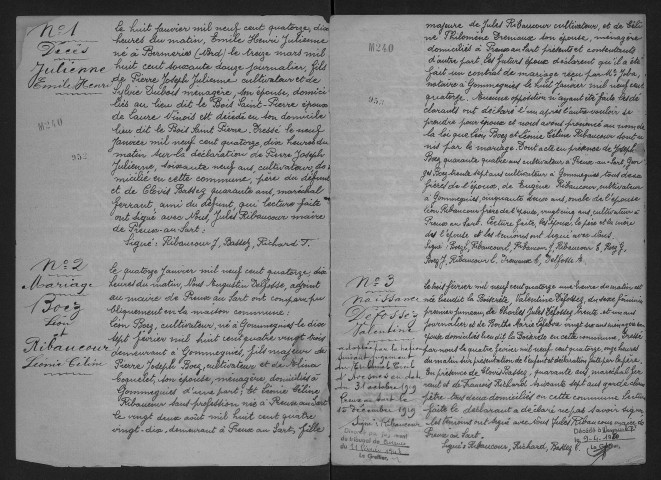 N°1
Décès
Julienne
Emile Henri
M240
952
Le huit Janvier mil neuf cent quatorze, dix
heures du matin, Emile Henri Julienne,
né à Bermeries (Nord) le treize mars mil
huit cent soixante douze journalier, fils
de Pierre Joseph Julienne cultivateur et de
Sylvie Dubois ménagère, son épouse, domici
liés au lieu dit le Bois Saint-Pierre époux
de Laure Vinois est décédé en son domicile
lieu dit le Bois Saint Pierre. Dressé le neuf
Janvier mil neuf cent quatorze, dix heures du
matin sur la déclaration de Pierre Joseph
Julienne, soixante neuf ans, cultivateur do
micilié en cette commune, père du défunt
et de Clovis Bassez quarante ans, maréchal
ferrant, ami du défunt, qui lecture faite
ont signé avec Nous, Jules Ribaucour maire
de Preux-au-Sart:
Signé: Ribaucour J, Bassez, Richard T.
N°2
Mariage
Boez
Léon
et
Ribaucour
Léonie Céline
Le quatorze Janvier mil neuf cent quatorze, dix
heures du matin, Nous Augustin Delfosse, adjoint
au maire de Preux au Sart ont comparu pu
bliquement en la maison commune:
Léon Boez, cultivateur, né à Gommegnies le dix
sept février mil huit cent quatre vingt trois
demeurant à Gommegnies, fils majeur de
Pierre Joseph Boez, cultivateur et de Alina
Coquelet, son épouse, ménagère domiciliés à
Gommegnies d'une part; Et Léonie Céline
Ribaucour sans profession née à Preux au Sart
le vingt deux août mil huit cent quatre
vingt-dix, demeurant à Preux au Sart, fille
M240
952
majeure de Jules Ribaucour cultivateur, et de Céli
ne Philomène Dremaux son épouse, ménagère
domiciliés à Preux au Sart présents et consentants
d'autre part. Les futurs époux déclarent qu'il a été
fait un contrat de mariage reçu par Me
notaire à Gommegnies le huit Janvier mil neuf cent
quatorze. Aucune opposition n'ayant été faite les dé
clarants ont déclaré l'un après l'autre vouloir se
prendre pour époux et nous avons prononcé au nom de
la loi que Léon Boez et Léonie Céline Ribaucour sont u
nis par le mariage. Dont acte en présence de Joseph
Boez quarante quatre ans cultivateur à Preux-au-Sart
Boez trente sept ans cultivateur à Gommegnies, tous deux
frères de l'époux, de Eugène Ribaucour, cultivateur
à Gommegnies, cinquante deux ans, oncle de l'épouse
Léon Ribaucour frère de l'épouse, vingt cinq ans, cultivateur à
Preux au Sart. Lecture faite, les époux, le père et la mère
de l'épouse et les témoins ont signé avec Nous.
Signé: Boez L, Ribaucour L, Ribaucour J, Ribaucour E, Boez G,
Boez J, Ribaucour L, Dremaux C, Delfosse A.
N°3
Naissance
Defossez
Valentine
31 octobre 1919
15 décembre 1919
Signé: Ribaucour
Le deux février mil neuf cent quatorze une heure du matin est
née lieu dit la Boiscrète, Valentine Defossez, du sexe féminin
premier jumeau, de Charles Jules Defossez trente et un ans
journalier et de Marie Lefebvre vingt six ans ménagère son
épouse domiciliés lieu dit la Boiscrète en cette commune. Dressé
par nous le quatre février mil neuf cent quatorze, onze heures
du matin sur présentation de l'enfant et déclaration faite par le père.
En présence de Clovis Bassez, quarante ans, maréchal fer
rant et de François Richard, soixante sept ans garde cham
pêtre tous deux domiciliés en cette commune. Lecture
faite le déclarant a déclaré ne pas savoir signer
Les témoins ont signé avec Nous Jules Ribaucour maire de
Preux au Sart.
Signé: Ribaucour, Richard, Bassez C.